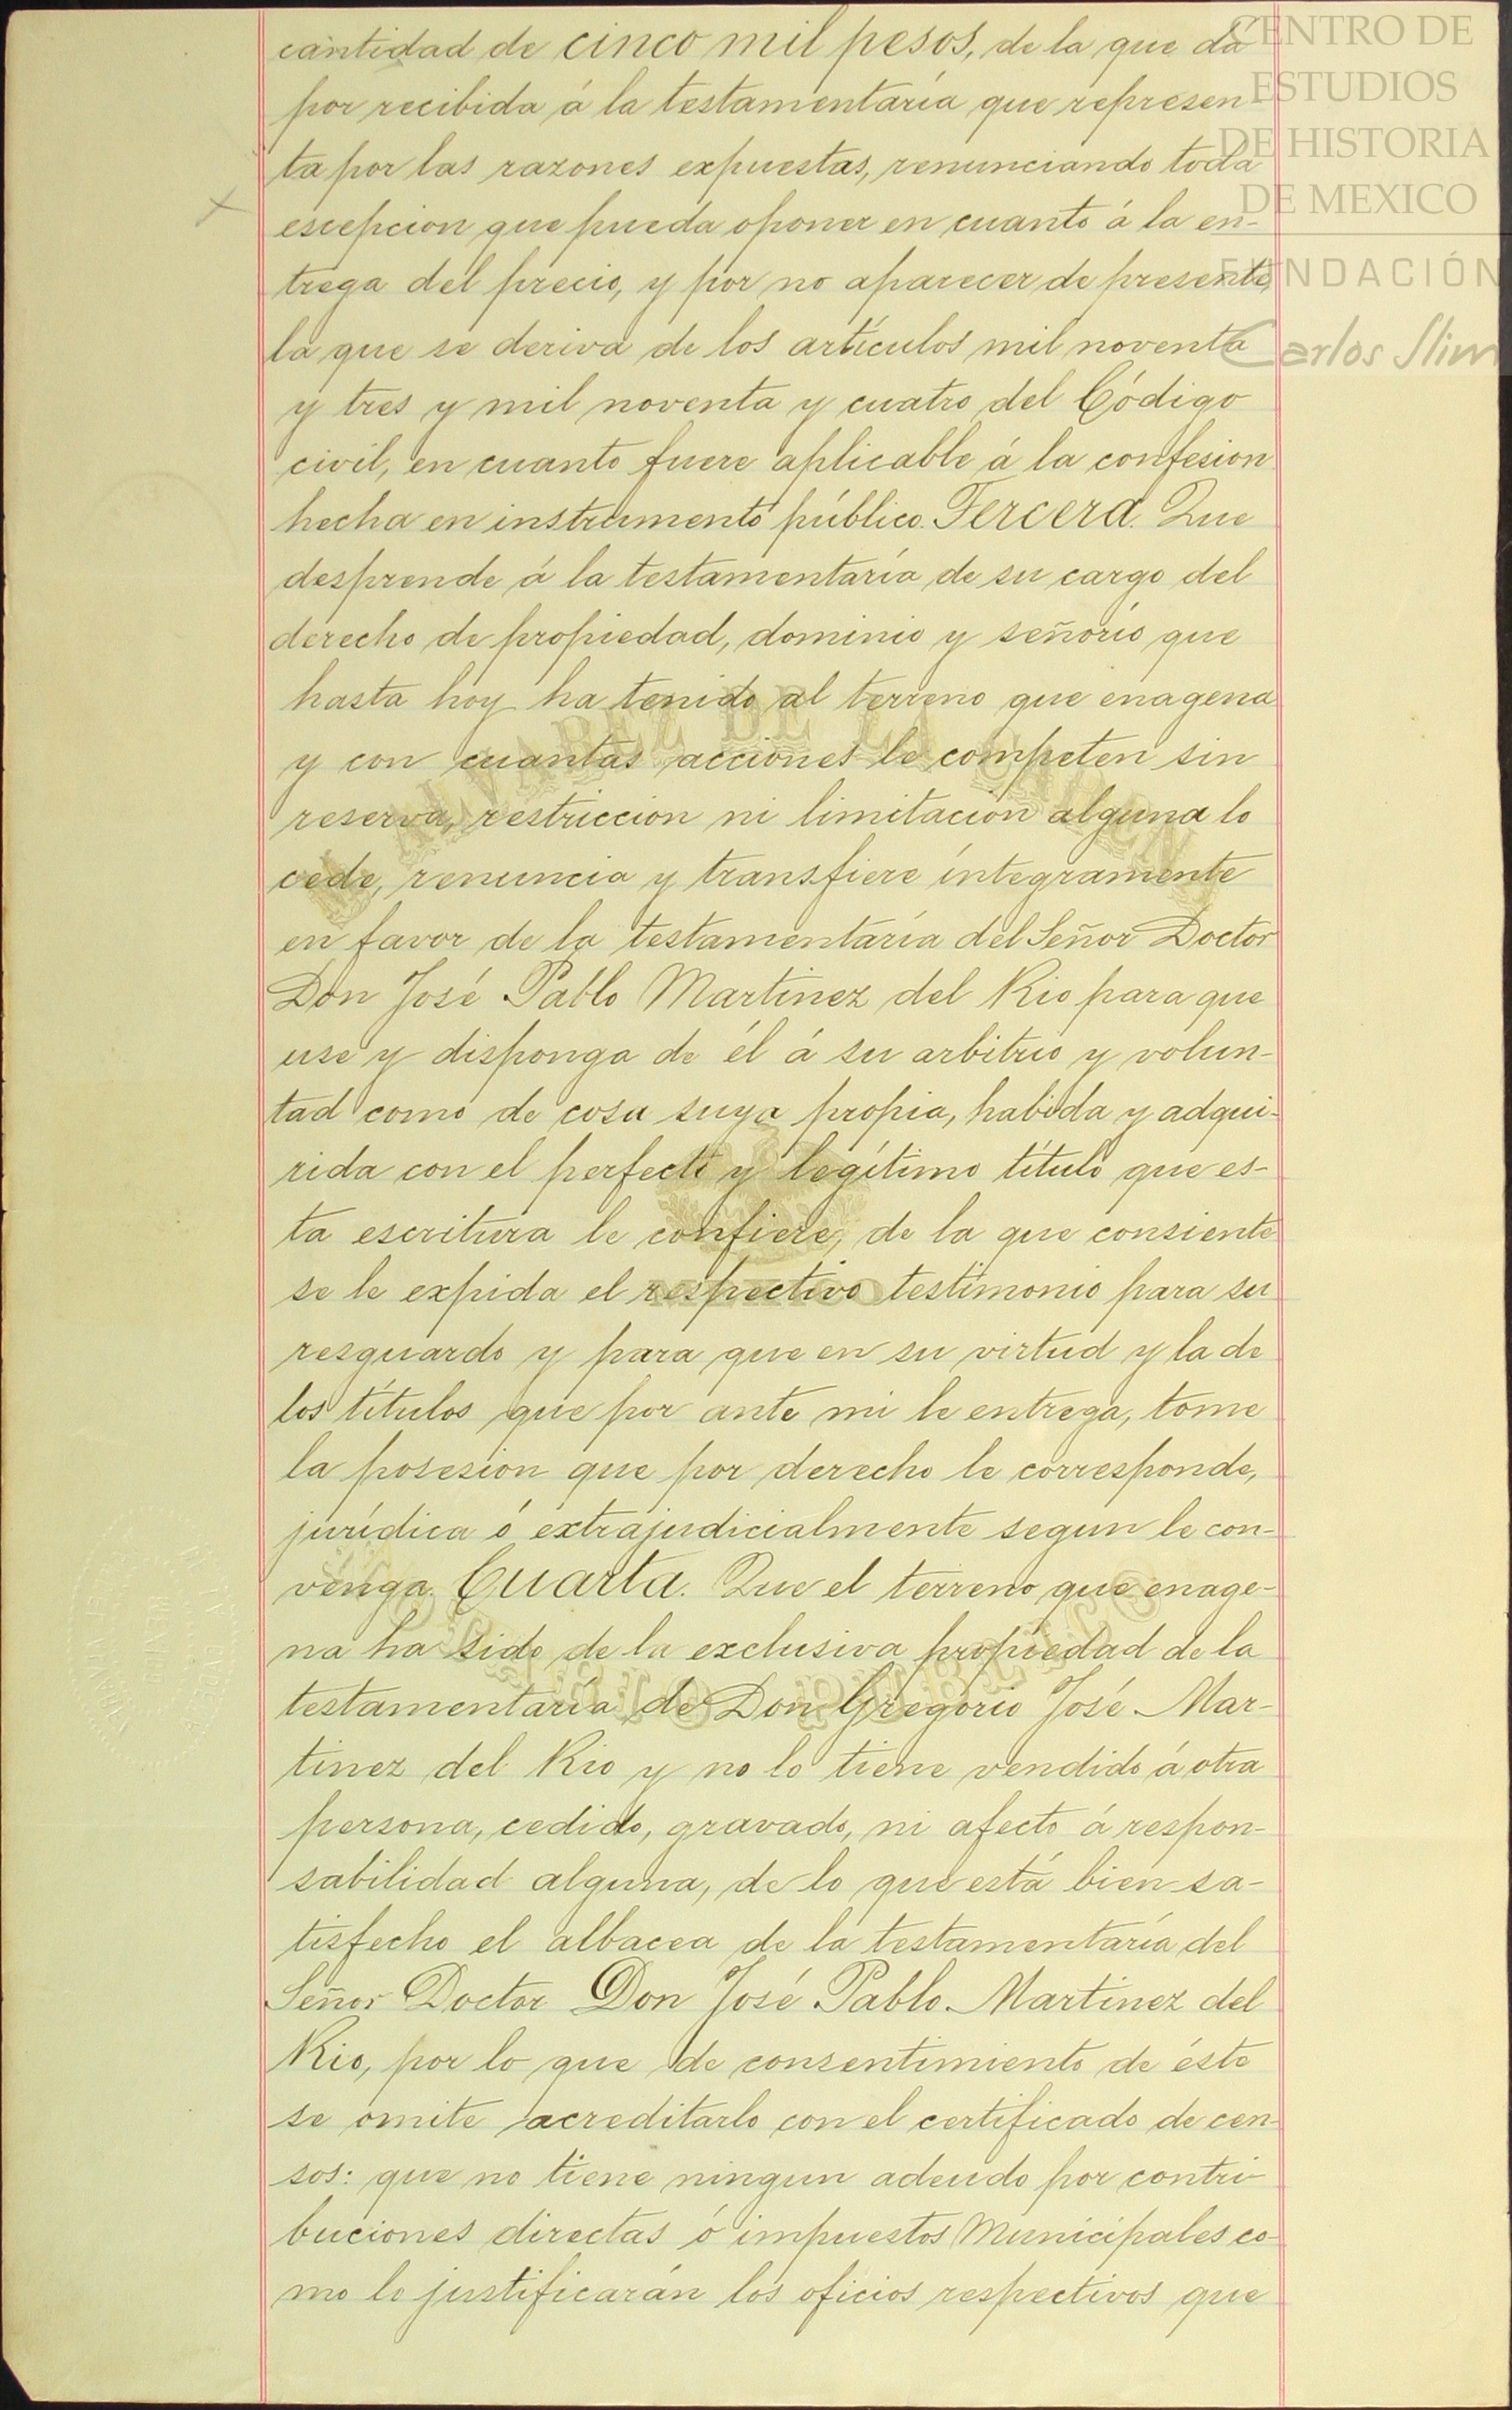 cantidad de cinco mil pesos, de la que da
por recibida á la testamentaría que represen
ta por las razones expuestas, renunciando toda
escepcion que pueda oponer en cuanto á la en-
trega del precio, y por no aparecer de presente,
la que se deriva de los artículos mil noventa
y tres y mil noventa y cuatro del Código
civil, en cuanto fuere aplicable á la confesion
hecha en instrumento público. Tercera. Que
desprende á la testamentaría de su cargo del
derecho de propiedad, dominio y señorío que
hasta hoy ha tenido al terreno que enagena
y con cuantas acciones le competen sin
reserva, restriccion ni limitacion alguna lo
cede, renuncia y transfiere íntegramente
en favor de la testamentaría del Señor Doctor
Don José Pablo Martinez del Rio para que
use y disponga de él á su arbitrio y volun-
tad como de cosa suya propia, habida y adqui-
rida con el perfecto y legítimo título que es-
ta escritura le confiere, de la que consiente
se le expida el respectivo testimonio para su
resguardo y para que en su virtud y la de
los títulos que por ante mi le entrega, tome
la posesion que por derecho le corresponde,
jurídica ó extrajudicialmente segun le con-
venga. Cuarta. Que el terreno que enage-
na ha sido de la exclusiva propiedad de la
testamentaría de Don Gregorio José Mar-
tinez del Rio y no lo tiene vendido á otra
persona, cedido, gravado, ni afecto á respon-
sabilidad alguna, de lo que está bien sa-
tisfecho el albacea de la testamentaría del
Señor Doctor Don José Pablo Martinez del
Rio, por lo que de consentimiento de éste
se omite acreditarlo con el certificado de cen-
sos: que no tiene ningun adeudo por contri-
buciones directas ó impuestos Municipales co-
mo lo justificarán los oficios respectivos que
CENTRO DE
ESTUDIOS
DE HISTORIA
DE MEXICO
FUNDACIÓN
Carlos Slim